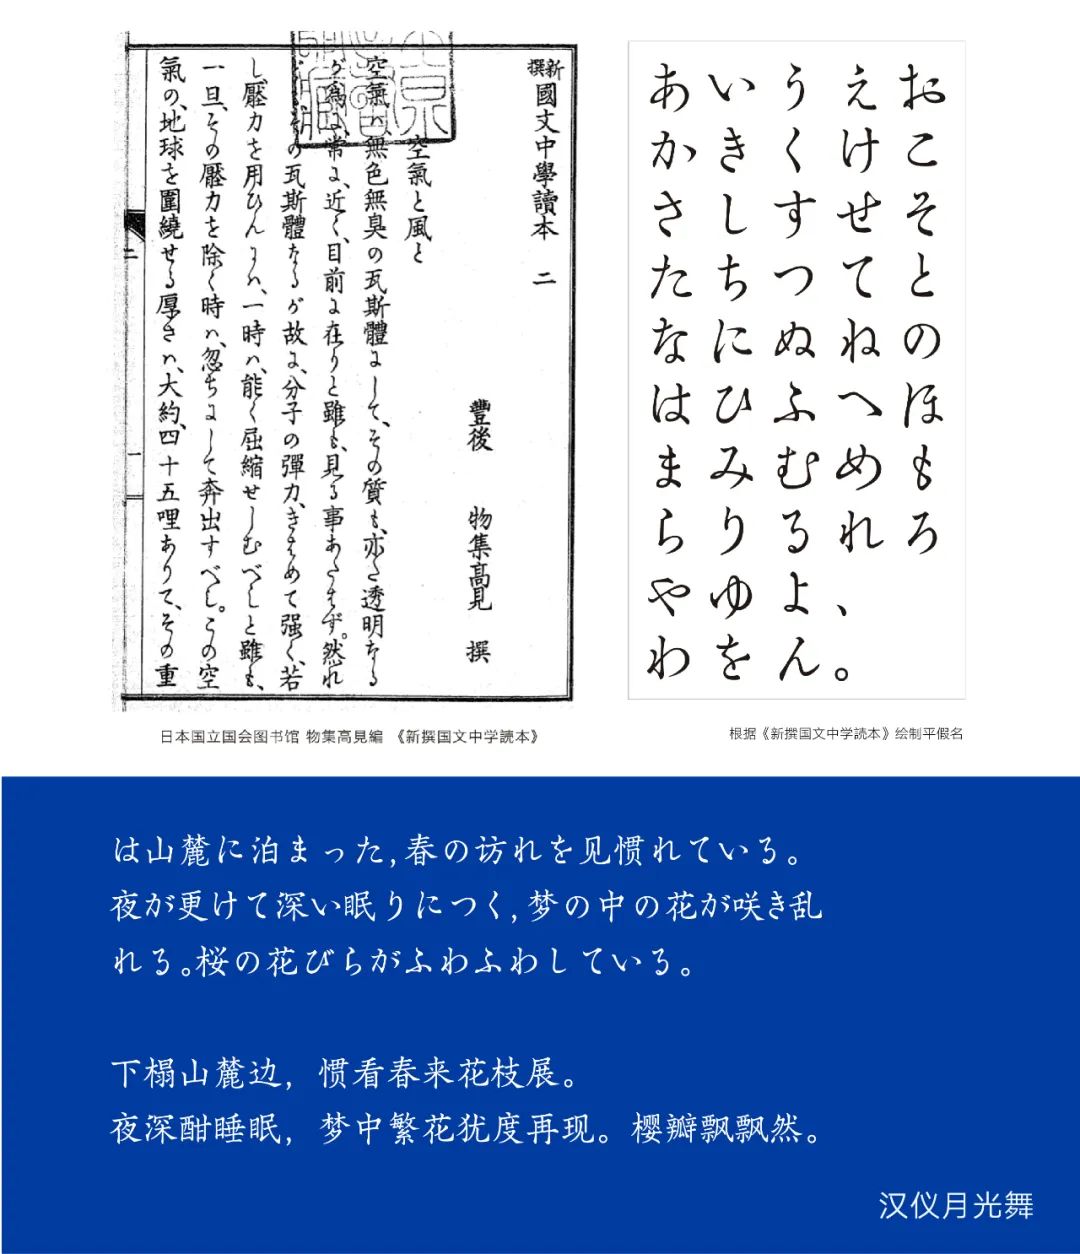 新撰國文中學讀本 二
豐後 物集高見 撰
空氣と風と
空氣ハ、無色無臭の瓦斯體にして、その質も、亦た透明なる
が為に、常に、近く、目前に在りと雖も、見る事あたはず。然れ
ども、その瓦斯體なるが故に、分子の彈力、きはめて強く、若
し壓力を用ひんにハ、一時ハ、能く屈縮せしむべしと雖も、
一旦、その壓力を除く時ハ、忽ちにして奔出すべし。この空
氣の、地球を圍繞せる厚さハ、大約、四十五哩ありて、その重
二
一
あいうえお
かきくけこ
さしすせそ
たちつてと
なにぬねの
はひふへほ
まみむめも
らりるれろ
やゆよ、
わをん。
日本国立国会图书馆 物集高見編 《新撰国文中学読本》
根据《新撰国文中学読本》绘制平假名
は山麓に泊まった,春の访れを见惯れている。
夜が更けて深い眠りにつく,梦の中の花が咲き乱
れる。桜の花びらがふわふわしている。
下榻山麓边，惯看春来花枝展。
夜深酣睡眠，梦中繁花犹度再现。樱瓣飘飘然。
汉仪月光舞